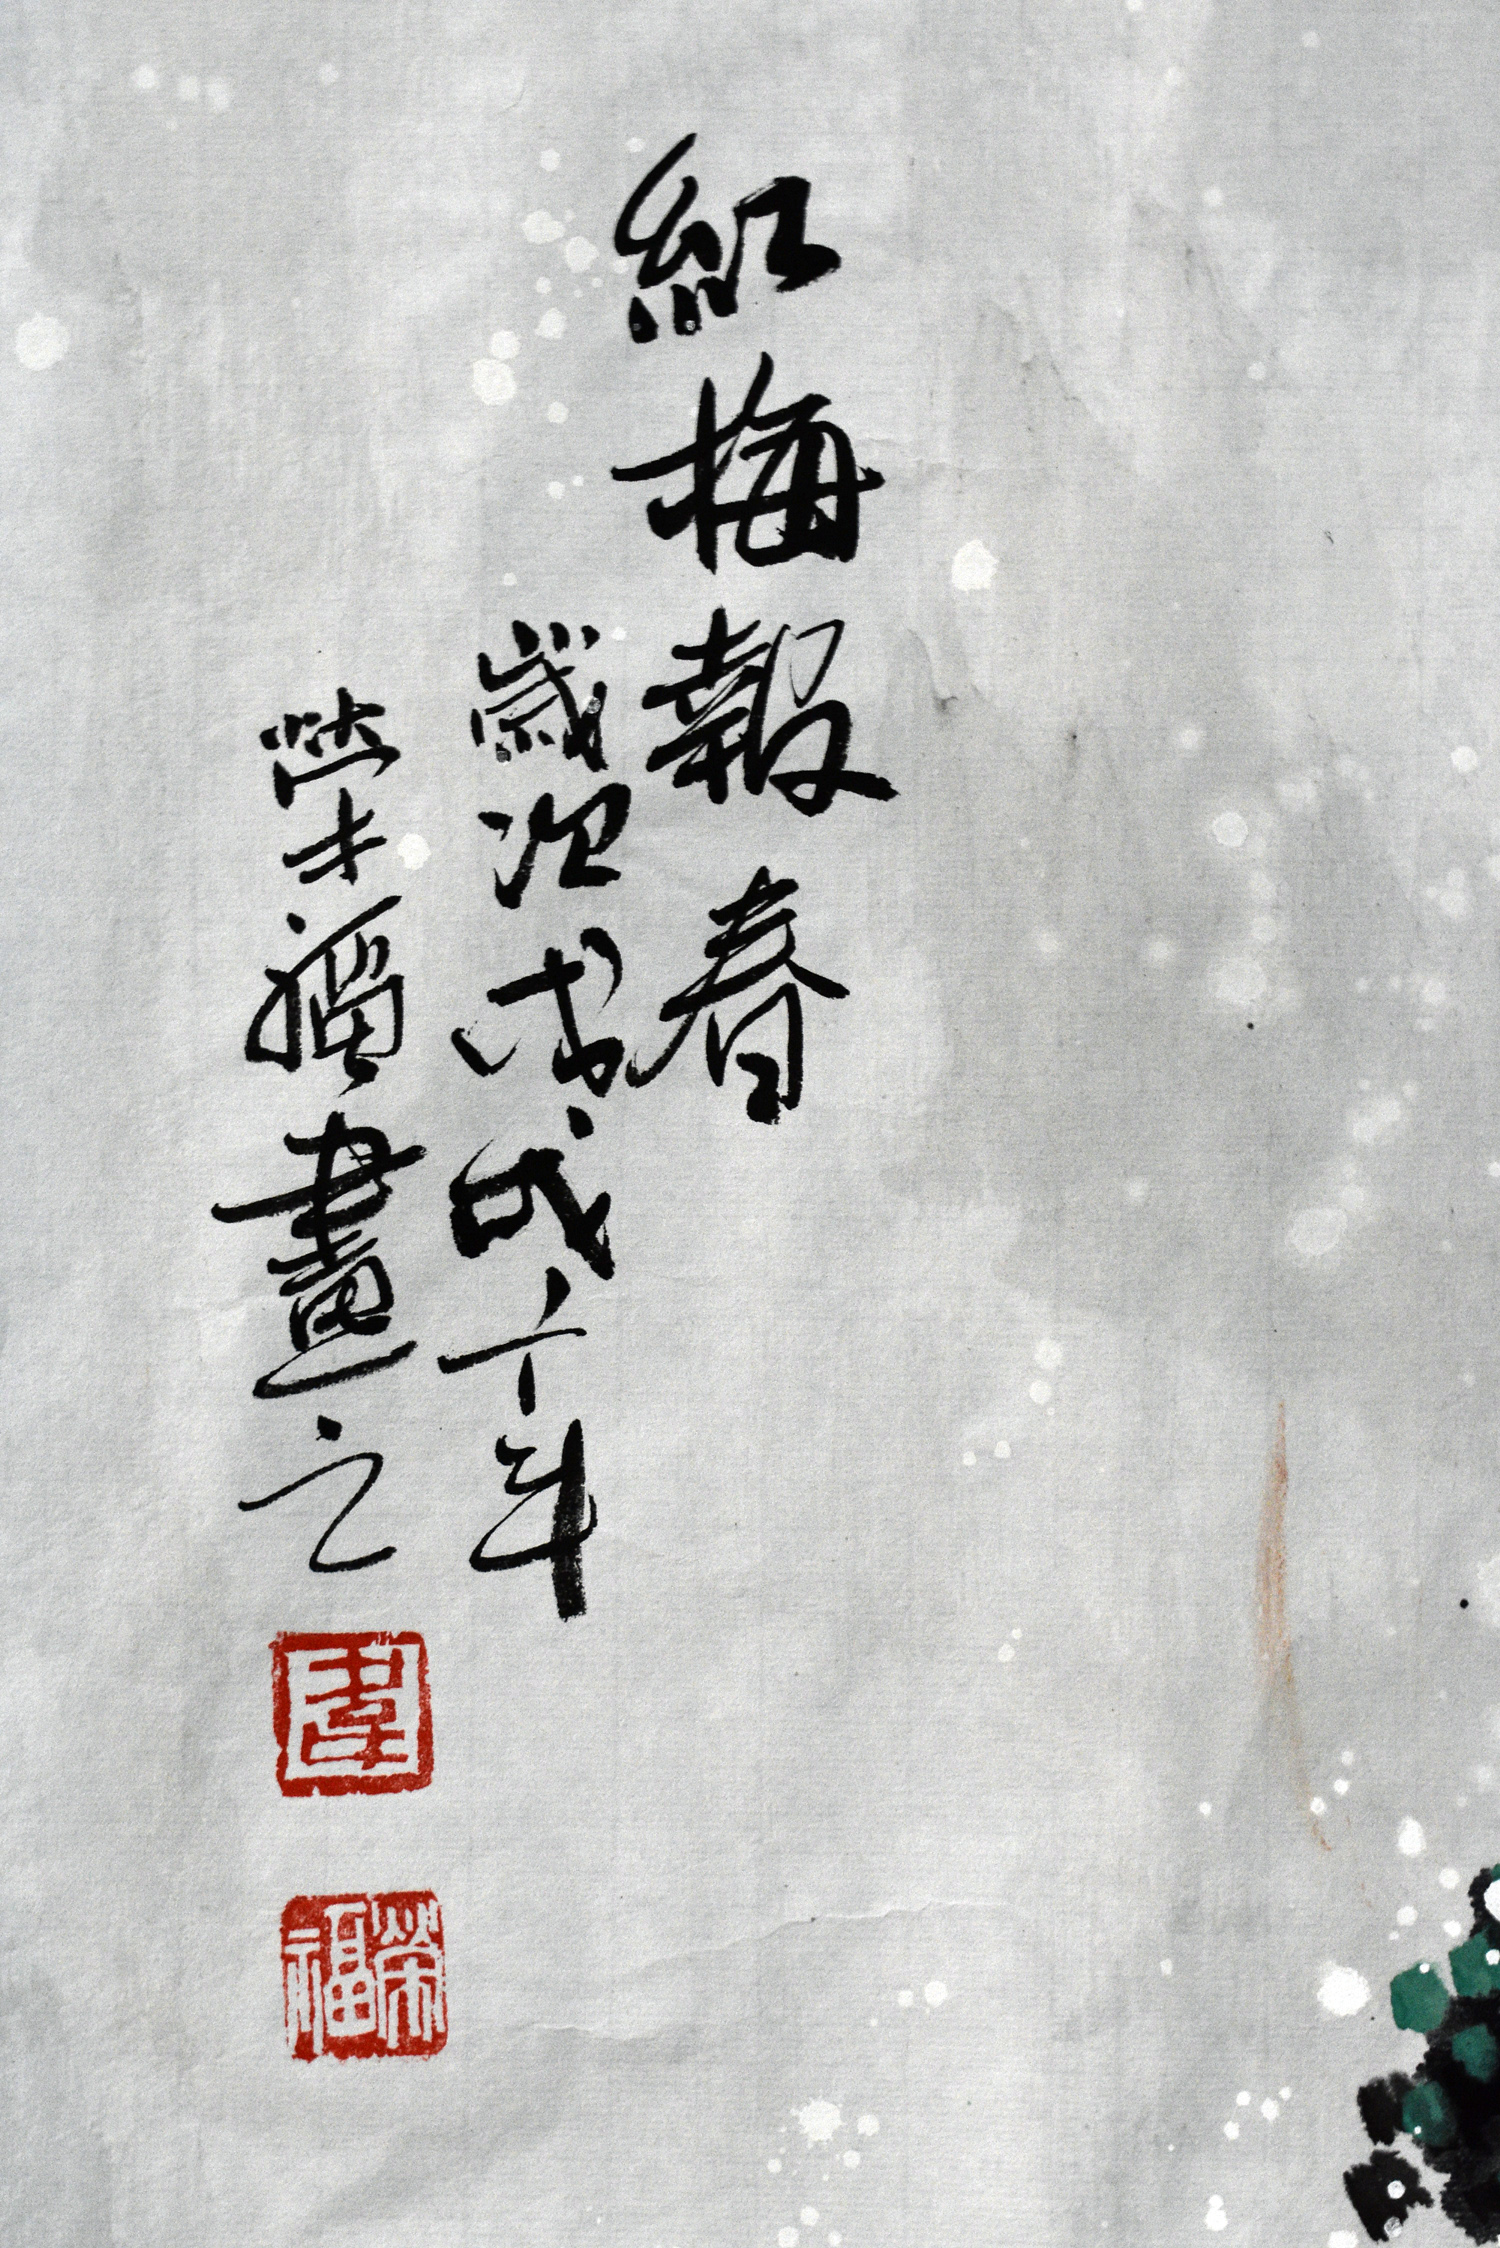 紅梅報春
歲次戊戌年
榮福畫之
韋
榮福